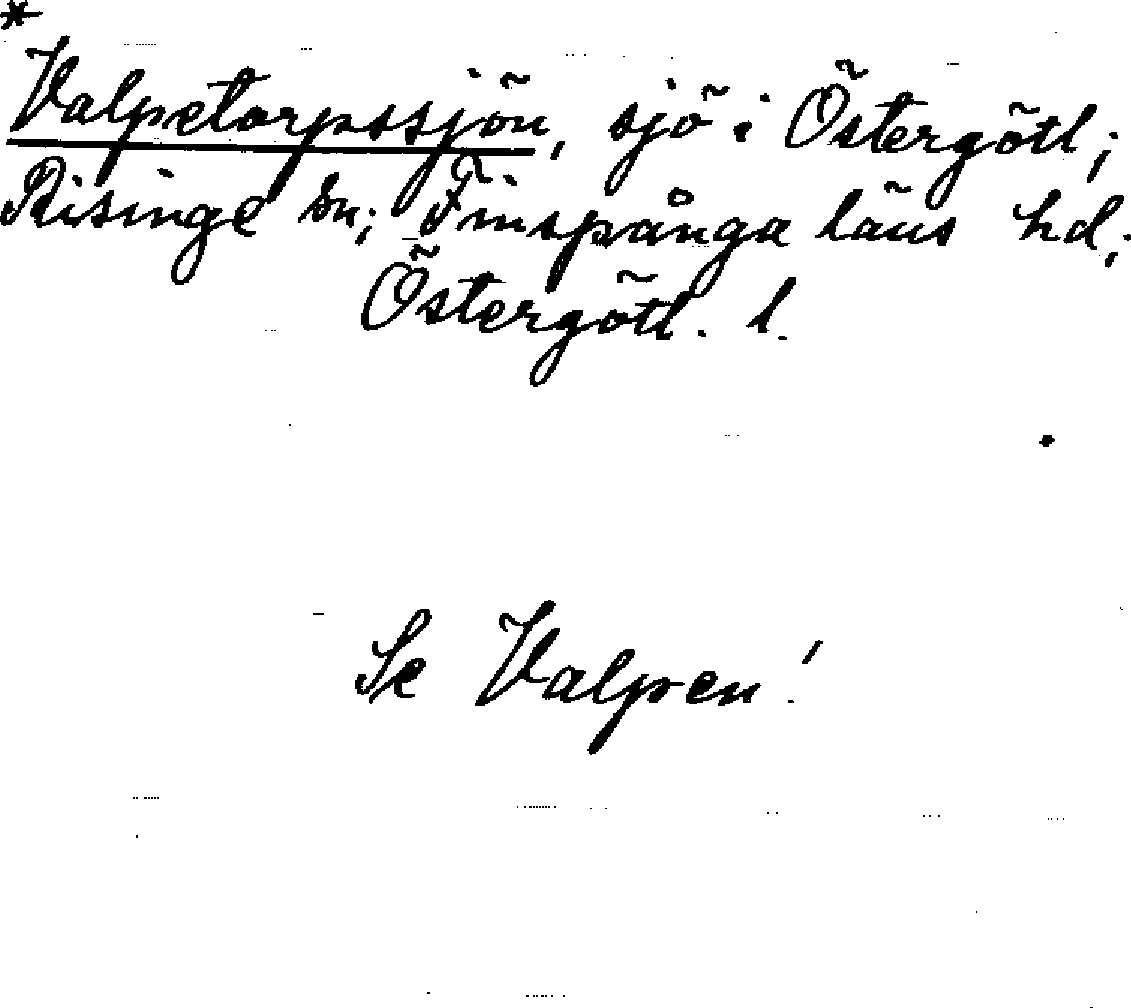 *
Valpetorpssjön, sjö i Östergötl;
Risinge sn; Finspånga läns hd;
Östergötl. l.
Se Valpen!